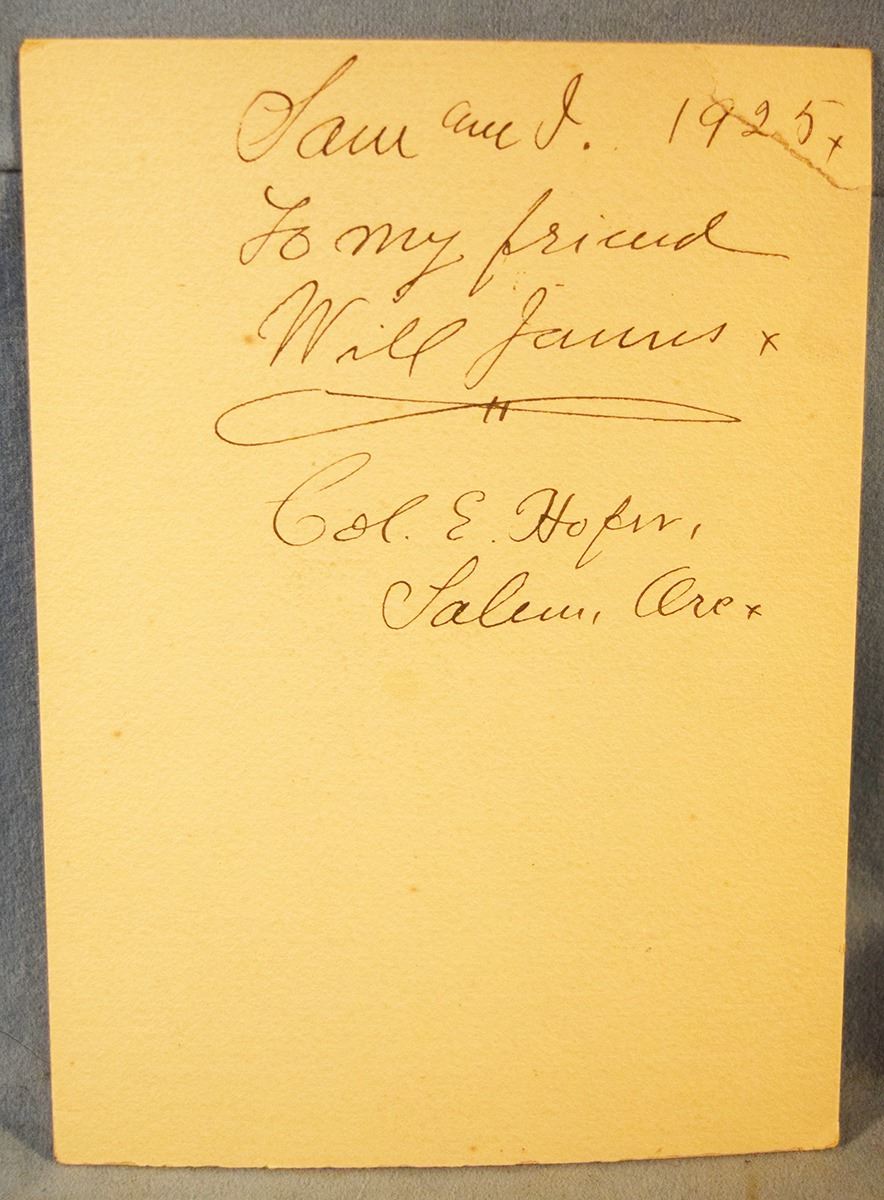 Sam and I. 1925x
To my friend
Will James x
Col. E. Hofer,
Salem, Ore x